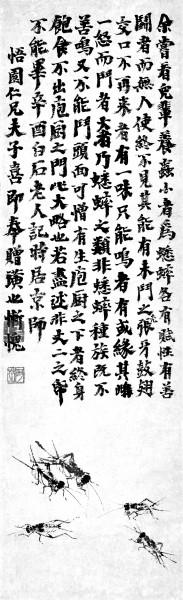 余嘗看羣養蟲小者為蟋蟀各有賦性有善
鬪者而無人使終不見其能有未鬪之先張牙鼓翅
交口不再來者有一味只能鳴者有或緣其雌
一怒而鬪者大者乃蟋蟀之類非蟋蟀種族既不
善鳴又不能鬪頭面可憎有生於庖廚之下者終身
飽食不出庖廚之門此大略也若盡述非丈二之紙
不能畢辛酉白石老人記時居京師
悟園仁兄夫子喜即奉贈璜也慚愧